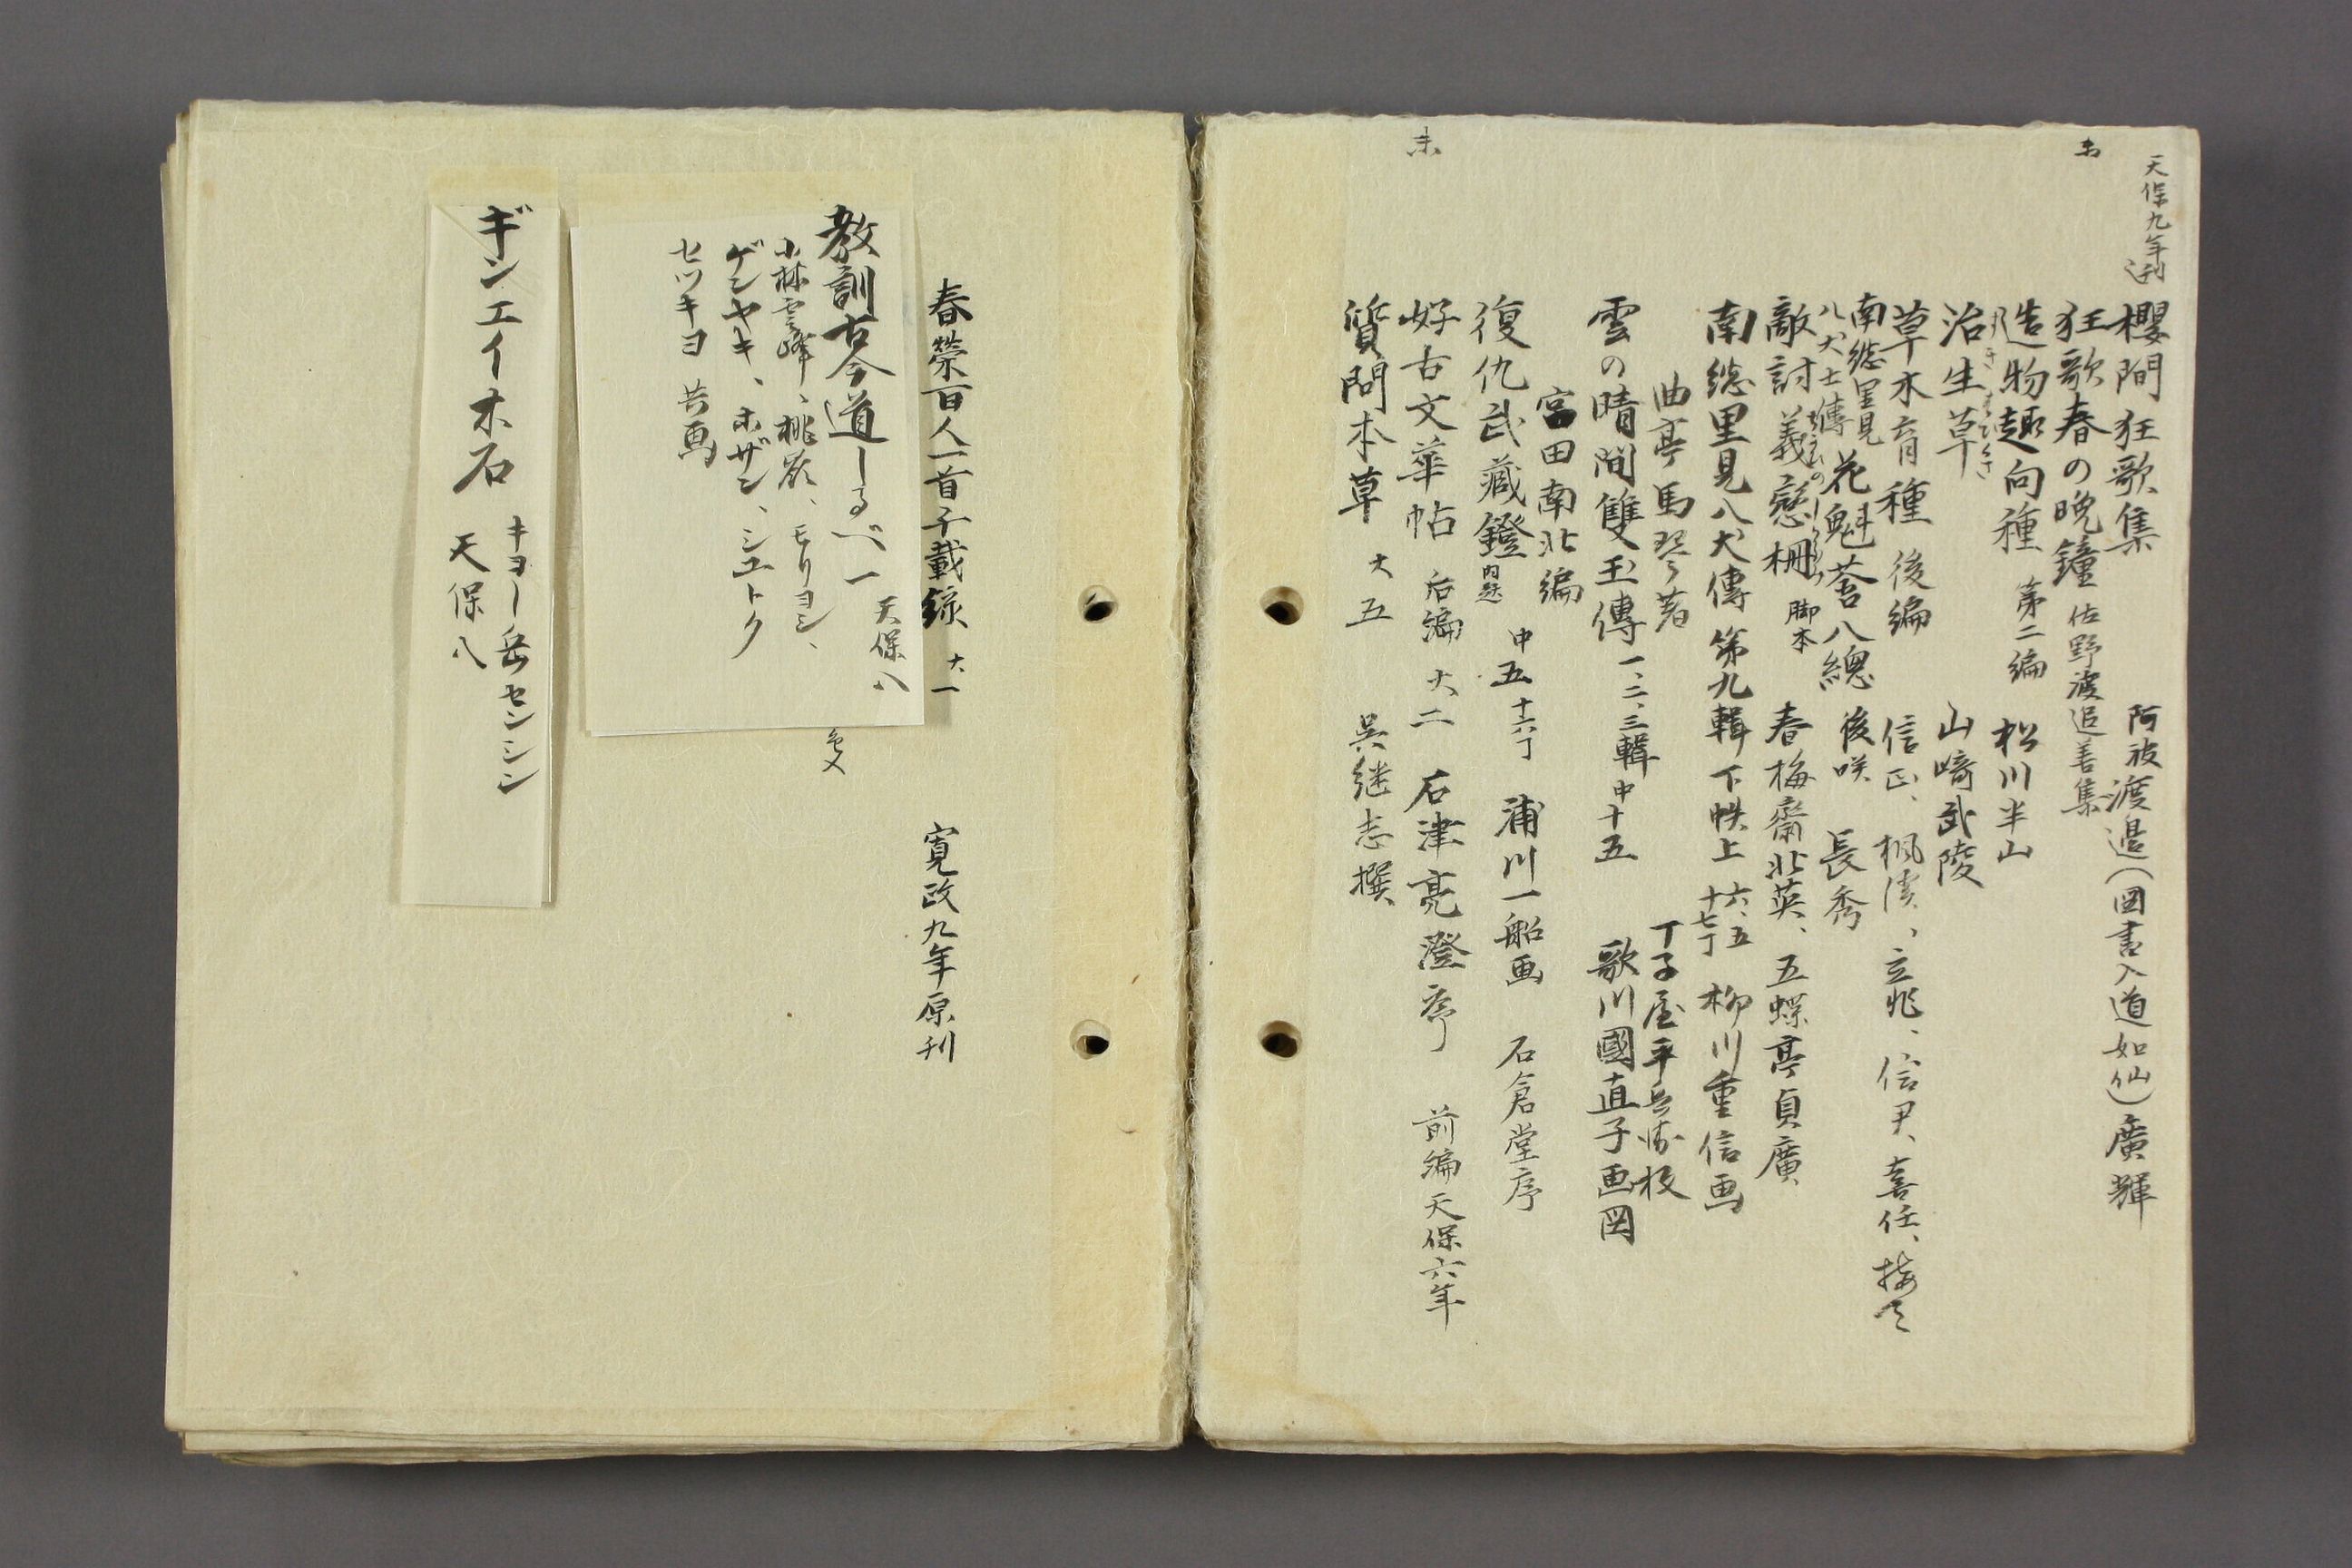 天保九年刊
櫻間狂歌集 阿波渡邉(図書入道如仙)廣輝
狂歌春の晩鐘 佐野渡追善集
造物趣向種 第二編 松川半山
治生草 山﨑武陵
草木育種 後編 信正、楓渓、立兆、信尹、喜任、
南総里見八犬士傳 花魁莟八總 後咲 長秀
敵討義戀柵 脚本 春梅齋北英、五蝶亭貞廣
南総里見八犬傳 第九輯下帙上 六、五 十七丁 柳川重信画
曲亭馬琴著 丁子屋平兵衛板
雲の晴間雙玉傳 一、二、三輯 中十五 歌川國直子画図
富田南北編
復仇武蔵鐙 内題 中五 十六丁 浦川一船画 石倉堂序
好古文華帖 后編 大二 石津亮澄序 前編天保六年
質問本草 大五 呉継志撰
未
春榮百人一首千載緑 大一 寛政九年原刊
教訓古今道しるべ 一 天保八
小林雲峰、桃岱、モリヨシ、
ゲンヤキ、ホザン、シユトク
セツキヨ 共画
ギンエイ木石 キヨー岳センシン
天保八